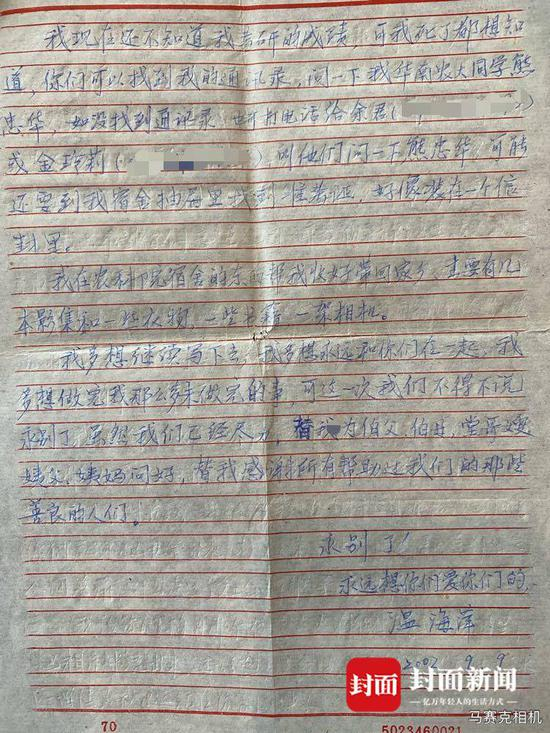 我现在还不知道我考研的成绩，可我死了都想知
道，你们可以找到我的通讯录，问一下我华南农大同学熊
忠华，如没找到通讯录 也可打电话给余君（
或金玲莉（ ），叫他们问一下熊忠华，可能
还要到我宿舍抽屉里找到准考证，好像装在一个信
封里。
我在农科院宿舍的东西帮我收好带回家乡，主要有几
本影集和一些衣物，一些书籍 一架相机。
我多想继续写下去，我多想永远和你们在一起，我
多想做完我那么多未做完的事，可这一次我们不得不说
永别了，虽然我们已经尽力，替我为伯父，伯母，堂哥嫂
姨父，姨妈问好，替我感谢所有帮助过我们的那些
善良的人们。
永别了！
永远想你们爱你们的，
温海萍
2002 9 9
封面 封面新闻
亿万年轻人的生活方式
70 5023460021
马赛克相机